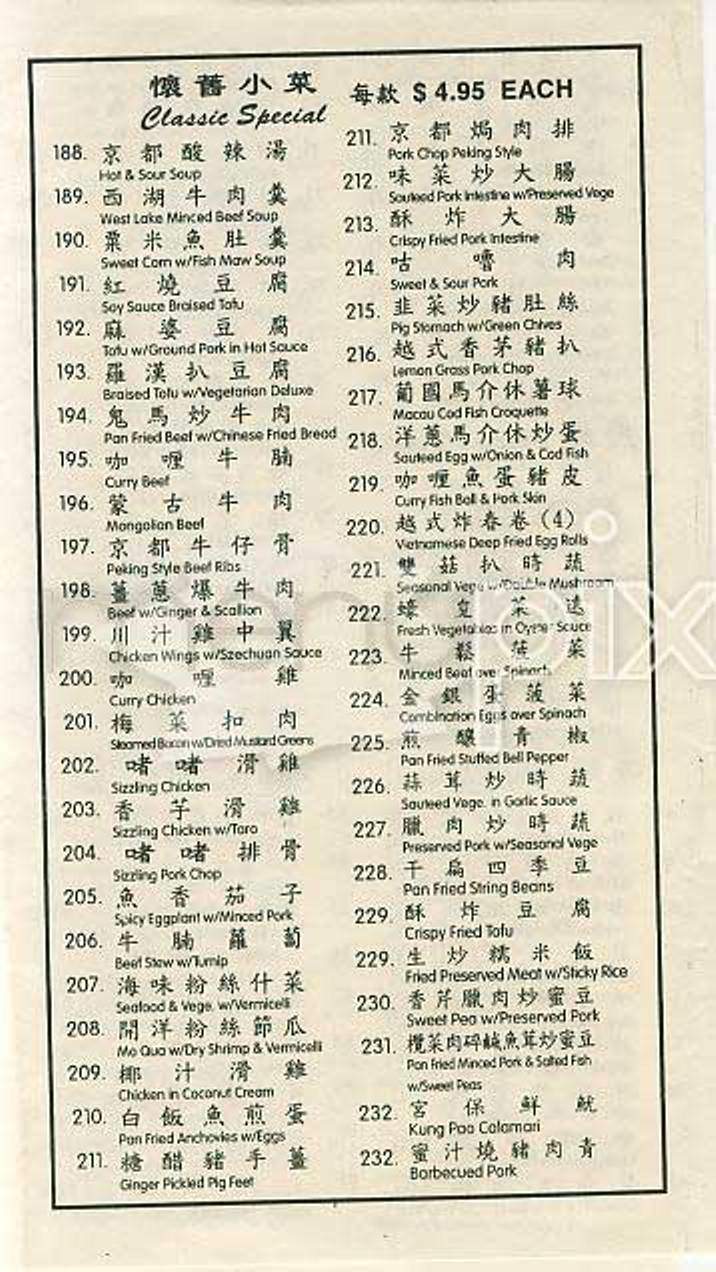 懷舊小菜
Classic Special
每款 $4.95 EACH
188. 京都酸辣湯
Hot & Sour Soup
189. 西湖牛肉羹
West Lake Minced Beef Soup
190. 粟米魚肚羹
Sweet Corn w/Fish Maw Soup
191. 紅燒豆腐
Soy Sauce Braised Tofu
192. 麻婆豆腐
Tofu w/Ground Pork in Hot Sauce
193. 羅漢扒豆腐
Braised Tofu w/Vegetarian Deluxe
194. 鬼馬炒牛肉
Pan Fried Beef w/Chinese Fried Bread
195. 咖喱牛腩
Curry Beef
196. 蒙古牛肉
Mongolian Beef
197. 京都牛仔骨
Peking Style Beef Ribs
198. 薑蔥爆牛肉
Beef w/Ginger & Scallion
199. 川汁雞中翼
Chicken Wings w/Szechuan Sauce
200. 咖喱雞
Curry Chicken
201. 梅菜扣肉
Steamed Bacon w/Dried Mustard Greens
202. 啫啫滑雞
Sizzling Chicken
203. 香芋滑雞
Sizzling Chicken w/Taro
204. 啫啫排骨
Sizzling Pork Chop
205. 魚香茄子
Spicy Eggplant w/Minced Pork
206. 牛腩蘿蔔
Beef Stew w/Turnip
207. 海味粉絲什菜
Seafood & Vege. w/Vermicelli
208. 開洋粉絲節瓜
Mo Qua w/Dry Shrimp & Vermicelli
209. 椰汁滑雞
Chicken in Coconut Cream
210. 白飯魚煎蛋
Pan Fried Anchovies w/Eggs
211. 糖醋豬手薑
Ginger Pickled Pig Feet
211. 京都焗肉排
Pork Chop Peking Style
212. 味菜炒大腸
Sauteed Pork Intestine w/Preserved Vege
213. 酥炸大腸
Crispy Fried Pork Intestine
214. 咕嚕肉
Sweet & Sour Pork
215. 韭菜炒豬肚絲
Pig Stomach w/Green Chives
216. 越式香茅豬扒
Lemon Grass Pork Chop
217. 葡國馬介休薯球
Macau Cod Fish Croquette
218. 洋蔥馬介休炒蛋
Sauteed Egg w/Onion & Cod Fish
219. 咖喱魚蛋豬皮
Curry Fish Ball & Pork Skin
220. 越式炸春卷(4)
Vietnamese Deep Fried Egg Rolls
221. 雙菇扒時蔬
Seasonal Vege w/Double Mushroom
222. 蠔菜
Fresh Vegetables in Oyster Sauce
223. 牛鬆菠菜
Minced Beef over Spinach
224. 金銀蛋菠菜
Combination Eggs over Spinach
225. 煎釀青椒
Pan Fried Stuffed Bell Pepper
226. 蒜茸炒時蔬
Sauteed Vege. in Garlic Sauce
227. 臘肉炒時蔬
Preserved Pork w/Seasonal Vege
228. 干扁四季豆
Pan Fried String Beans
229. 酥炸豆腐
Crispy Fried Tofu
229. 生炒糯米飯
Fried Preserved Meat w/Sticky Rice
230. 香芹臘肉炒蜜豆
Sweet Pea w/Preserved Pork
231. 欖菜肉碎鹹魚茸炒蜜豆
Pan Fried Minced Pork & Salted Fish
w/Sweet Peas
232. 宮保鮮魷
Kung Pao Calamari
232. 蜜汁燒豬肉青
Barbecued Pork